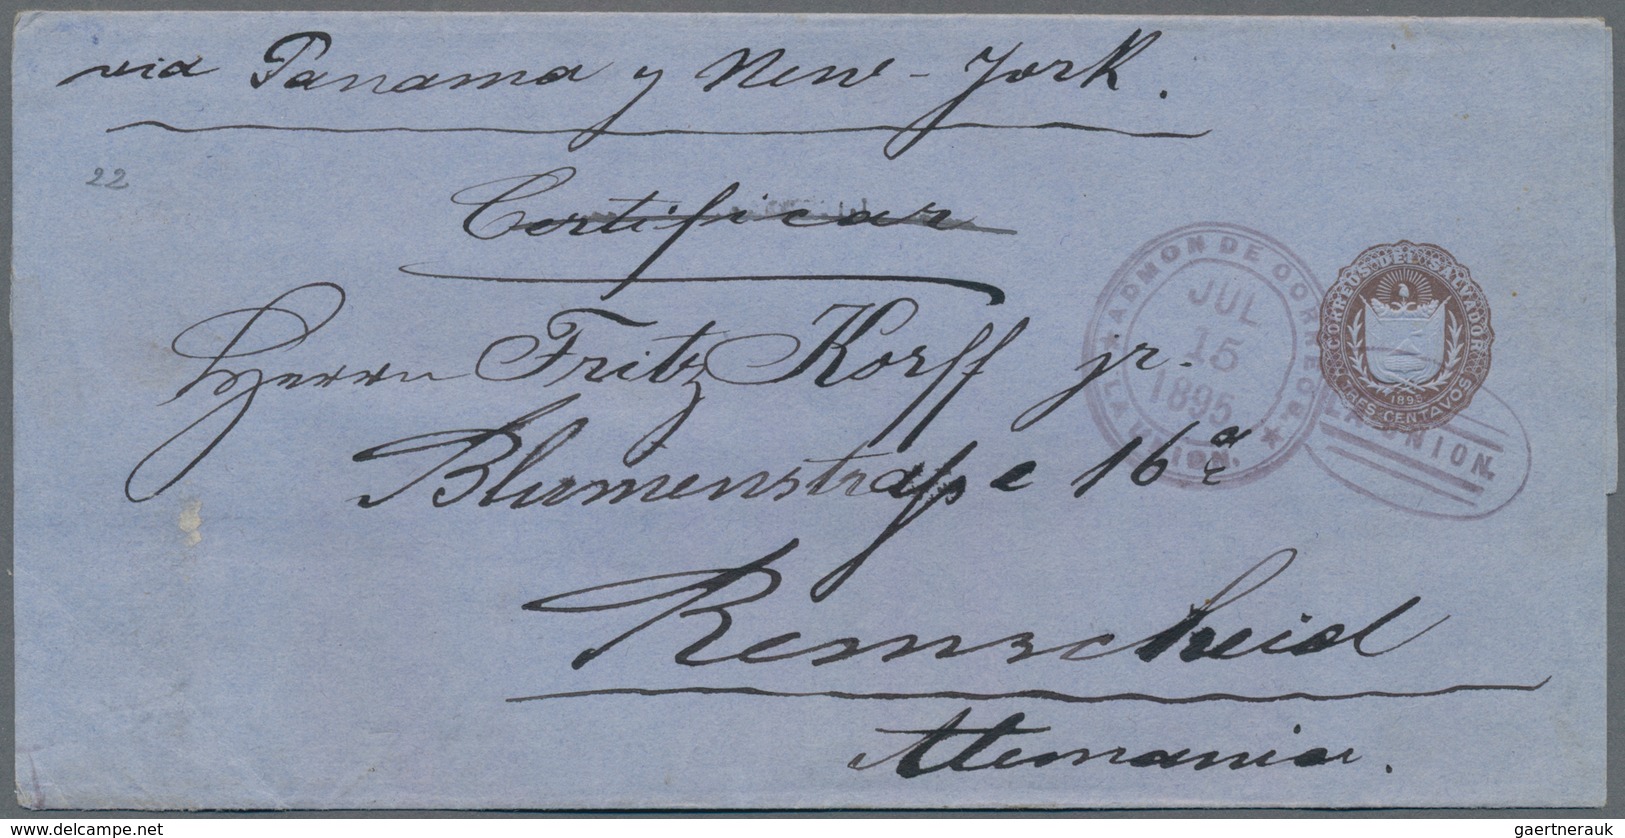 via Panama y New-York.
22
Certificar
Herrn Fritz Korff jr.
Blumenstraße 16a
Remscheid
Alemania.
ADMON DE CORREOS.
JUL
15
1895
LA UNION.
CORREOS DEL SALVADOR
1895
TRES CENTAVOS
LA UNION.
delcampe.net
gaertnerauk